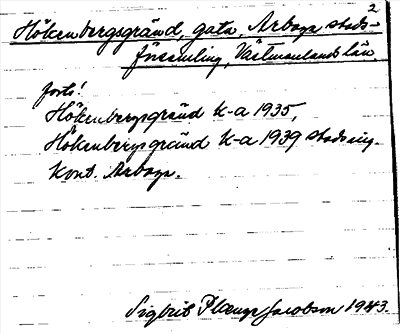 2
Hökenbergsgränd, gata, Arboga stads-
församling, Västmanlands län
forts!
Hökenbergsgränd K-a 1935,
Hökenbergsgränd K-a 1939 stadsing.
kont. Arboga.
Sigbrit Plænge Jacobson 1943.